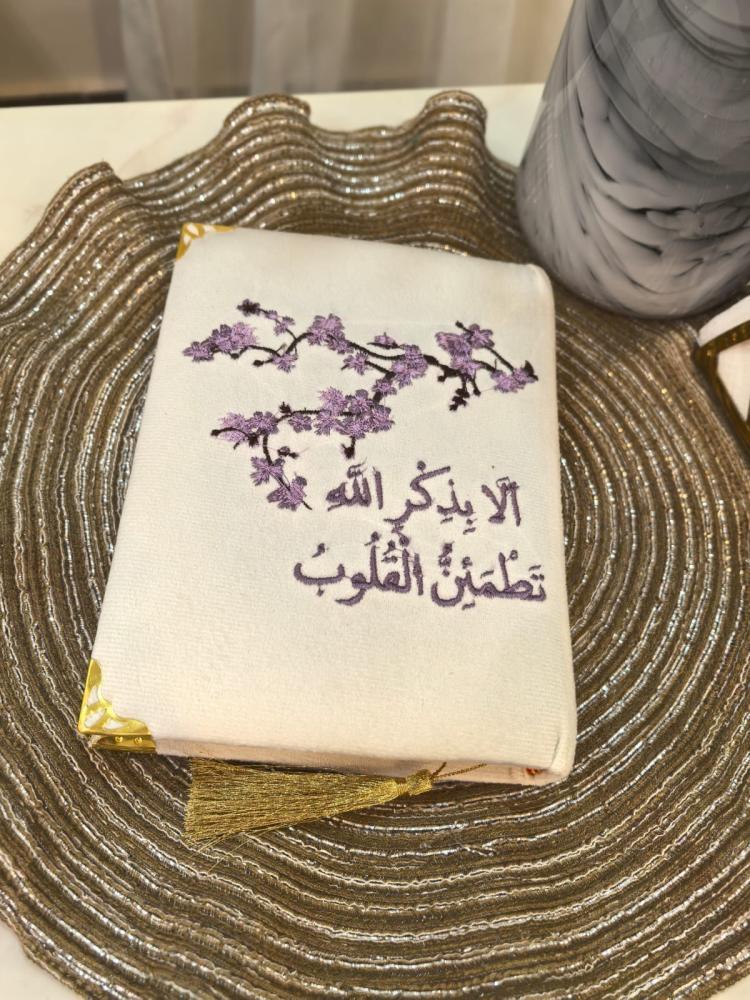 اَلَا بِذِكْرِ اللّٰهِ
تَطْمَئِنُّ الْقُلُوبُ